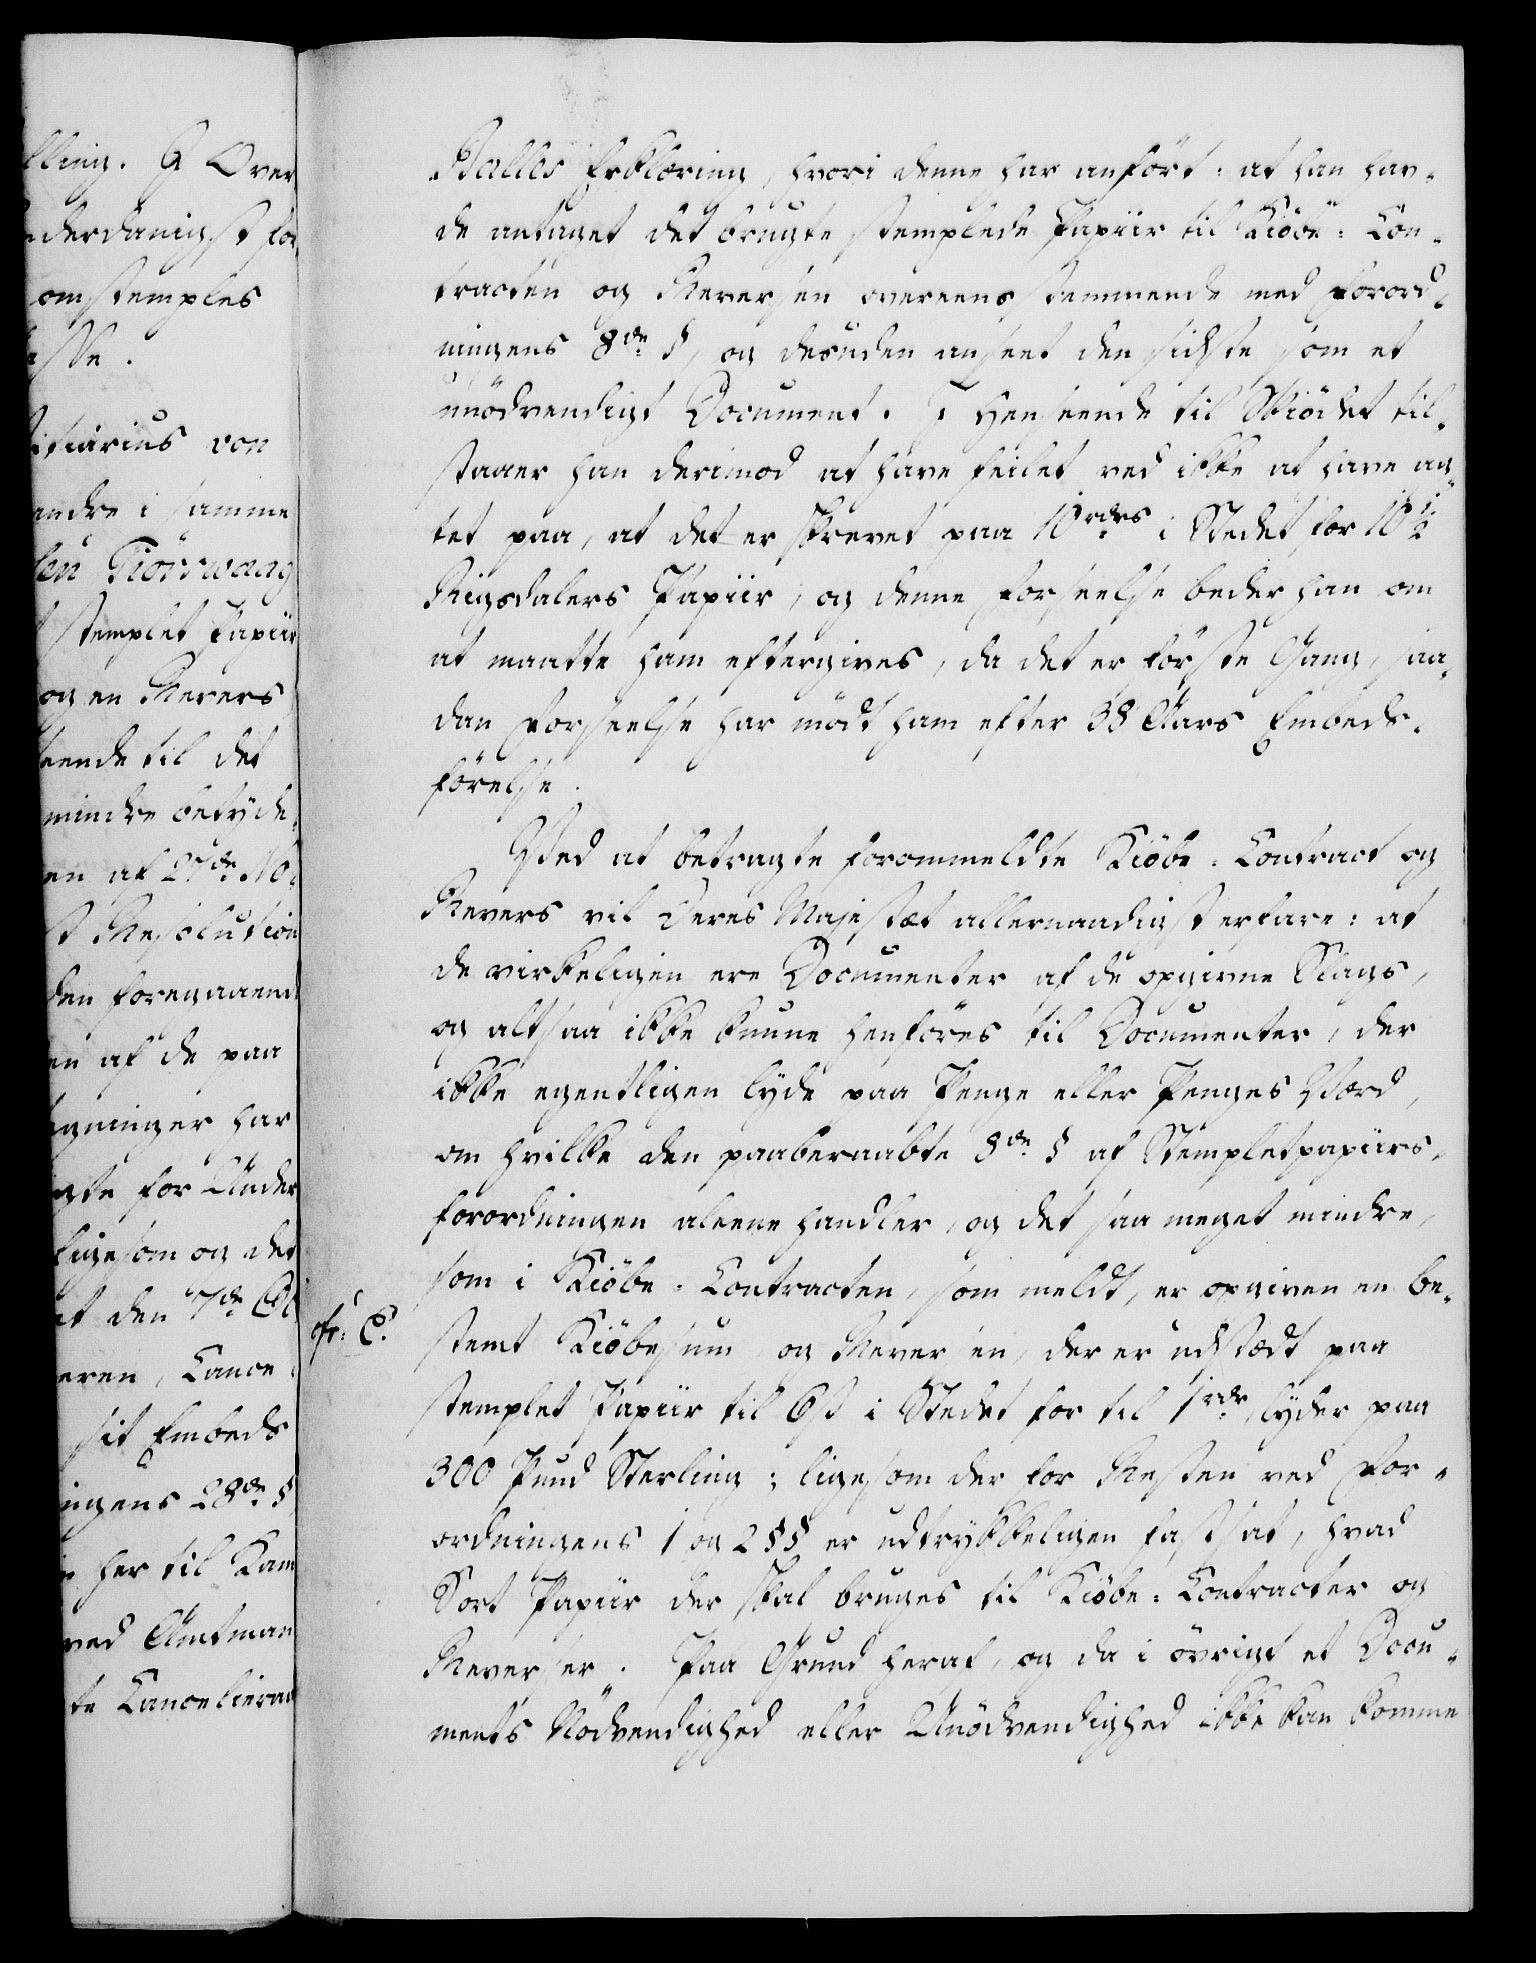 lling. I Over
nderdanigst for
omstemples
asse.
titiarius von
andre i samme
len Tiörswaag
stemplet Papiir
og en Revers
seende til det
mindre betyde-
en af 27de No-
st Resolution
den foregaaend
en af de paa
egninger har
ugte for Under
ligesom og det
at den 7de Oct
eren, Cance-
sit Embeds
ingens 28de §
her til Kam
ved Amtman
te Cancelieraad
Balles Erklæring, hvori denne har anført: at han hav-
de antaget det brugte stemplede Papiir til Kiöbe-Con-
tracten og Reversen overeensstemmende med Forord-
ningens 8de §, og desuden anseet den sidste som et
unödvendigt Document. I Henseende til Skiödet til-
staaer han derimod at have feilet ved ikke at have ag-
tet paa, at det er skrevet paa 10 rdrs i Stedet for 10½
Rigsdalers Papiir, og denne Forseelse beder han om
at maatte ham eftergives, da det er förste Gang, saa-
dan Forseelse har mödt ham efter 38 Aars Embeds-
förelse.
Ved at betragte forommeldte Kiöbe-Contract og
Revers vil Deres Majestæt allernaadigst erfare: at
de virkeligen ere Documenter af de opgivne Slags,
og altsaa ikke kunne henföres til Documenter, der
ikke egentligen lyde paa Penge eller Penges Værd,
om hvilke den paaberaabte 8de § af Stempletpapiirs-
forordningen aleene handler, og det saa meget mindre,
som i Kiöbe-Contracten, som meldt, er opgiven en be-
cfr: C.
stemt Kiöbesum og Reversen, der er udstædt paa
stemplet Papiir til 6 ß i Stedet for til 1 rdr, lyder paa
300 Pund Sterling; ligesom der for Resten ved For-
ordningens 1 og 2 §§ er udtrykkeligen fastsat, hvad
Sort Papiir der skal bruges til Kiöbe-Contracter og
Reverser. Paa Grund heraf, og da i övrigt et Docu-
ments Nödvendighed eller Unödvendighed ikke kan komme